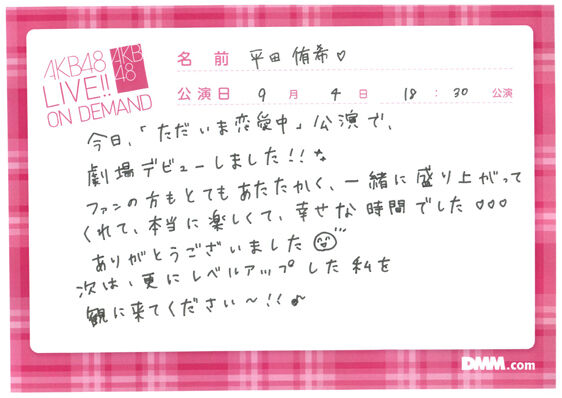 AKB48
LIVE!!
ON DEMAND
AKB
48
名前 平田侑希♡
公演日 9月4日 18:30公演
今日、「ただいま恋愛中」公演で、
劇場デビューしました!!
ファンの方もとてもあたたかく、一緒に盛り上がって
くれて、本当に楽しくて、幸せな時間でした♡♡♡
ありがとうございました
次は、更にレベルアップした私を
観に来てください〜!!♪
DMM.com